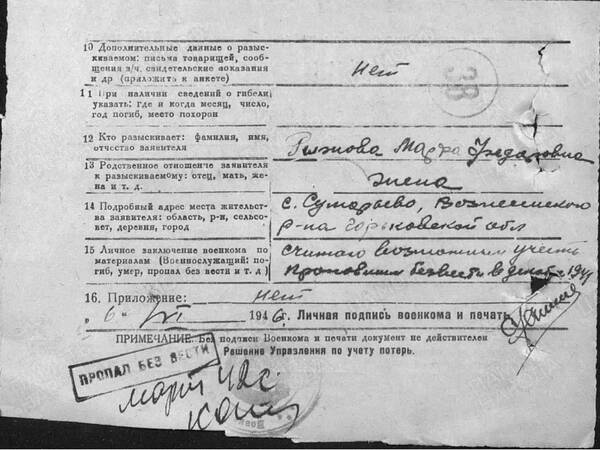 10 Дополнительные данные о разыс-
киваемом: письма товарищей, сооб-
щения в/ч. свидетельские показания
и др (приложить к анкете)
нет
38
11 При наличии сведений о гибели,
указать: где и когда месяц, число,
год погиб, место похорон
12 Кто разыскивает: фамилия, имя,
отчество заявителя
Марфа Федаровна
13 Родственное отношение заявителя
к разыскиваемому: отец, мать, же-
на и т. д.
жена
14 Подробный адрес места жительст-
ва заявителя: область, р-н, сельсо-
вет, деревня, город
с. Сумарьево, Вознесенского
р-на Горьковской обл
15 Личное заключение военкома по
материалам (Военнослужащий: по-
гиб, умер, пропал без вести и т. д )
считаю возможным учесть
пропавшим безвести в декаб. 1941
16. Приложение: нет
„ 6 " VI 1946 г. Личная подпись военкома и печать
ПРИМЕЧАНИЕ: Без подписи Военкома и печати документ не действителен
Решение Управления по учету потерь.
ПРОПАЛ БЕЗ ВЕСТИ
март 42г.